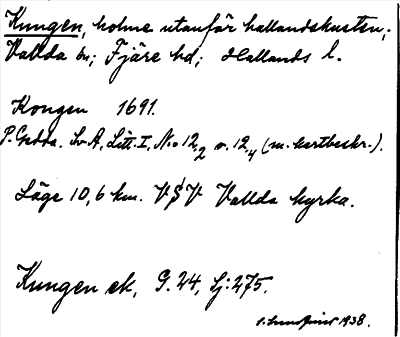 Kungen, holme utanför hallandskusten,
Vallda sn; Fjäre hd; Hallands l.
Kongen 1691.
P. Gedda. Sv. A, Litt. I, No 12 2 o. 12 4 (m. kortbeskr.).
Läge 10,6 km. VSV Vallda kyrka.
Kungen ek, G. 24, Sj: 275.
1938.